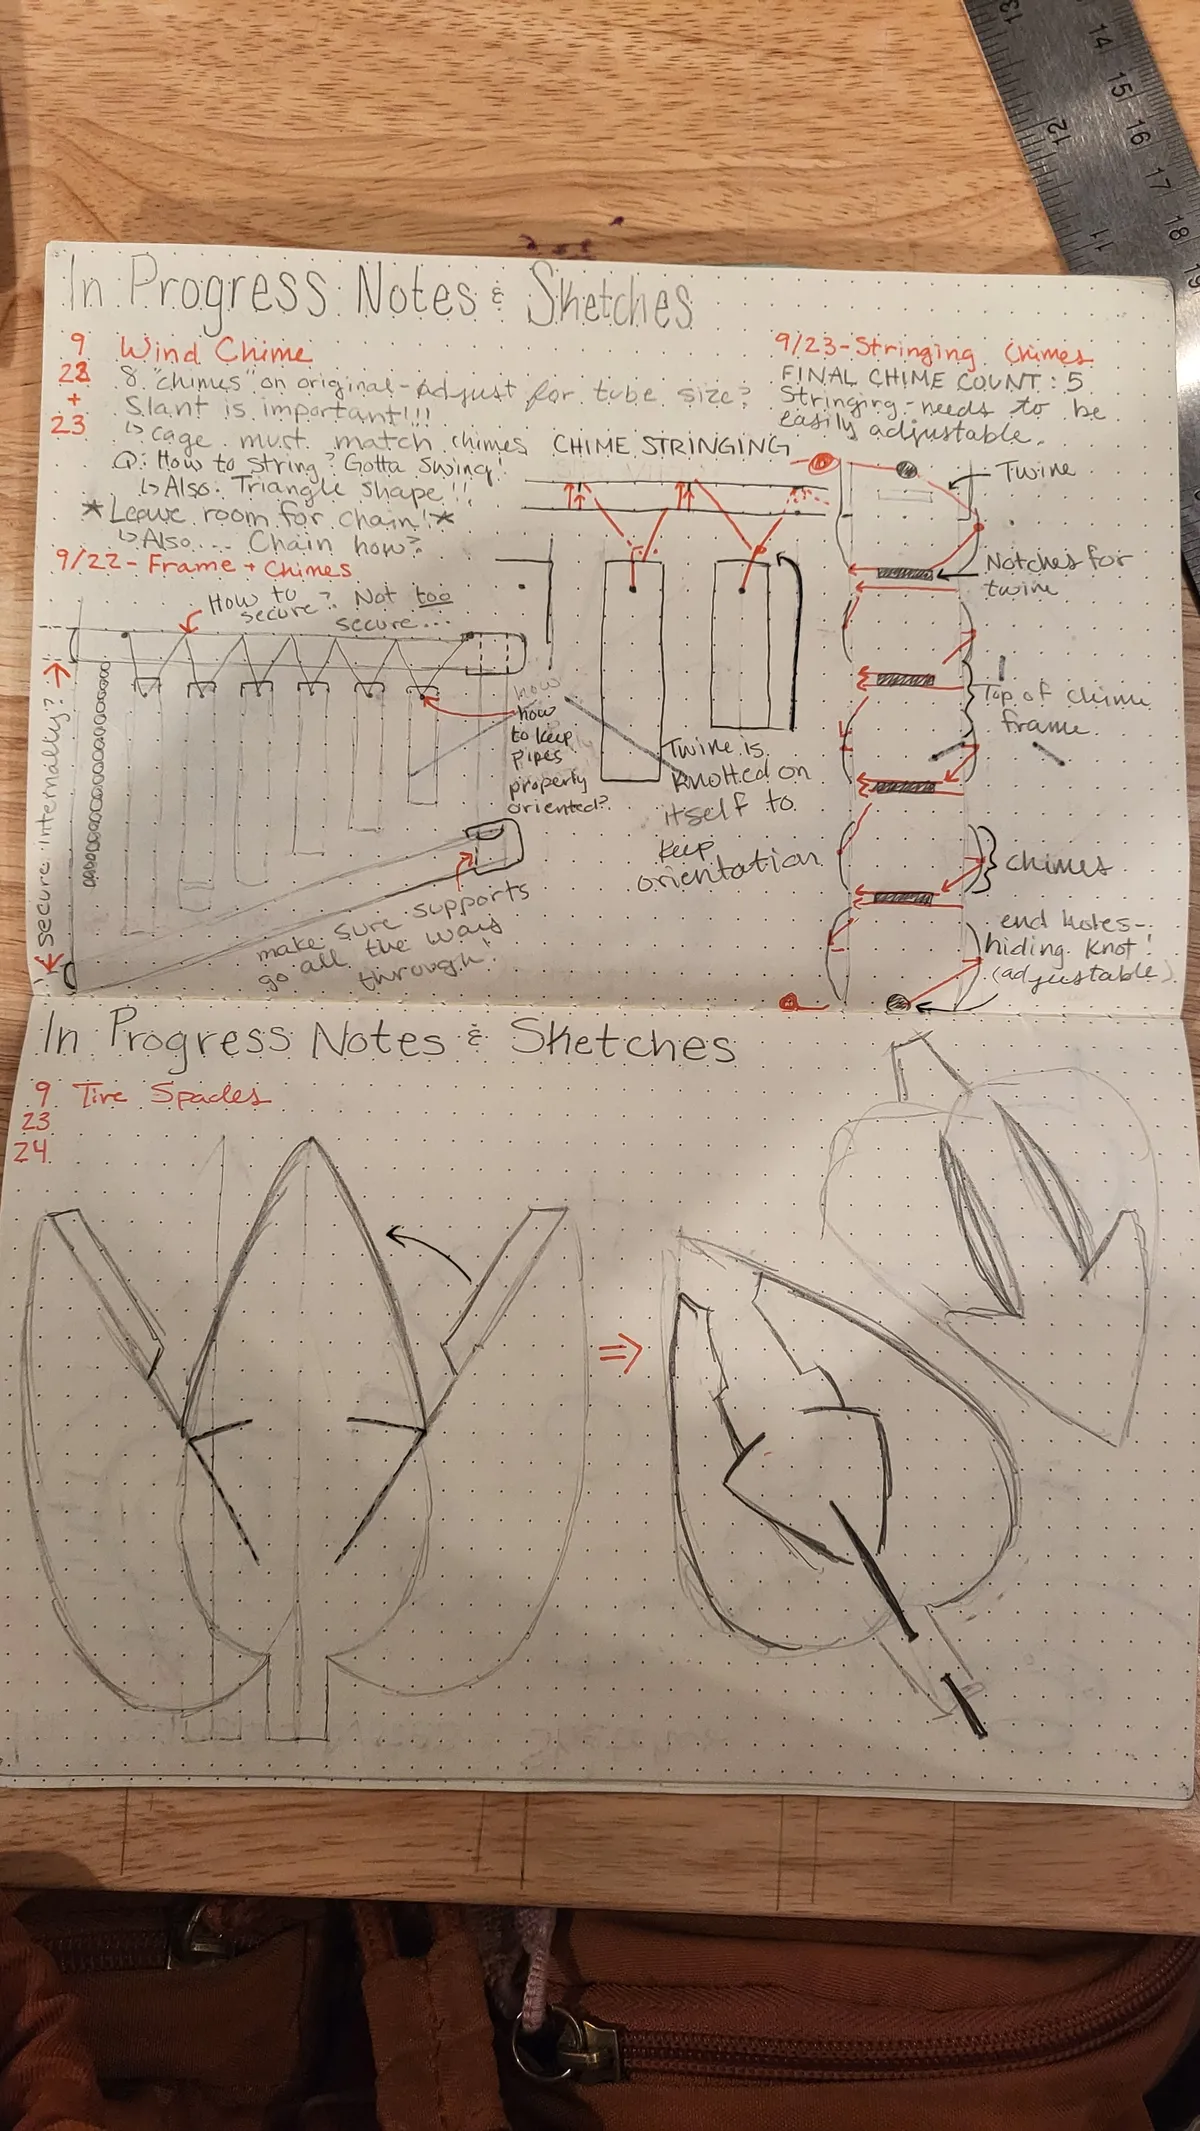 In Progress Notes & Sketches
9
22
+
23
Wind Chime
8 "chimes" on original - Adjust for tube size?
Slant is important!!!
↳ cage must match chimes
Q: How to string? Gotta swing!
↳ Also: Triangle shape!!
*Leave room for chain!*
↳ Also... Chain how?
9/22 - Frame + Chimes
How to
secure? Not too
secure...
← secure internally? →
how
how
to keep
pipes
properly
oriented?
make sure supports
go all the way
through!
CHIME STRINGING
Twine is
knotted on
itself to
keep
orientation
9/23 - Stringing Chimes
FINAL CHIME COUNT: 5
Stringing - needs to be
easily adjustable.
Twine
Notches for
twine
Top of chime
frame
chimes
end holes -
hiding knot!
(adjustable)
In Progress Notes & Sketches
9
23
24
Tire Spades
13
14
15
16
17
18
19
12
11